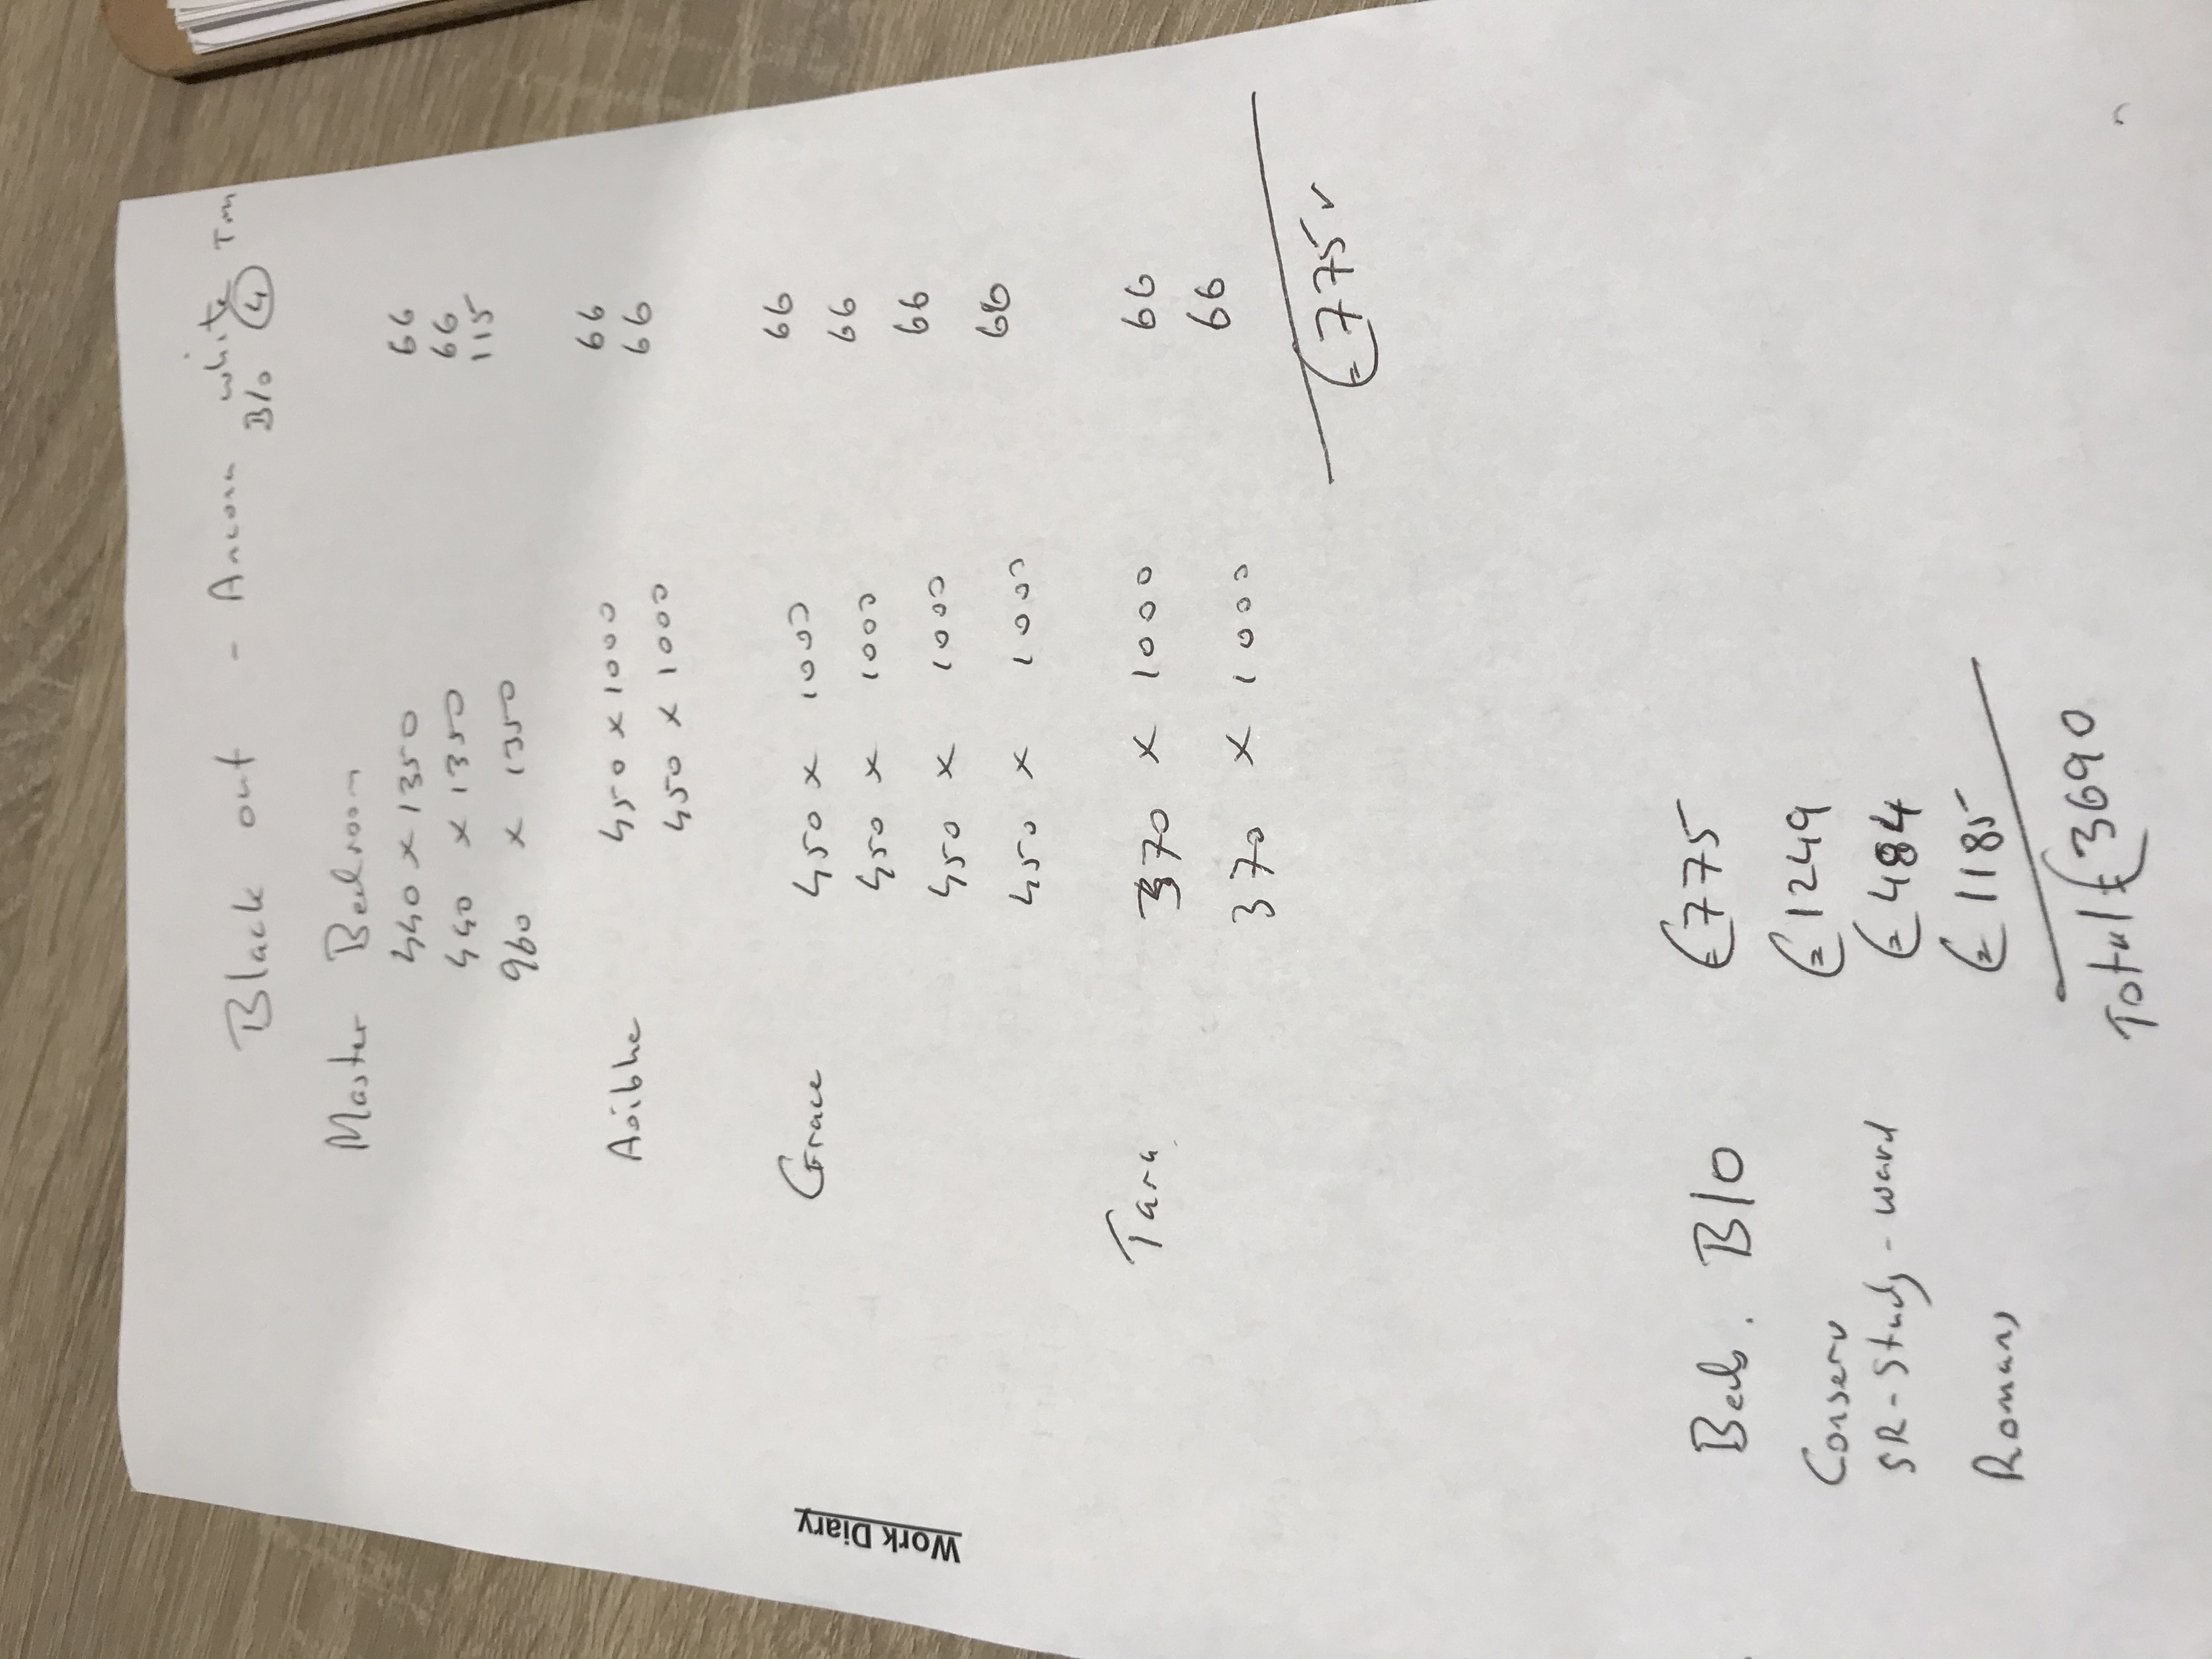 Black out - Ancona white
B/o 4 Tm
Master Bedroom
440 x 1350 66
440 x 1350 66
960 x 1350 115
Aoibhe 450 x 1000 66
450 x 1000 66
Grace 450 x 1000 66
450 x 1000 66
450 x 1000 66
450 x 1000 66
Tara. 370 x 1000 66
370 x 1000 66
€775
Beds. B/o €775
Conserv €1249
SR - Study - ward €484
Romans €1185
Total €3690
Work Diary